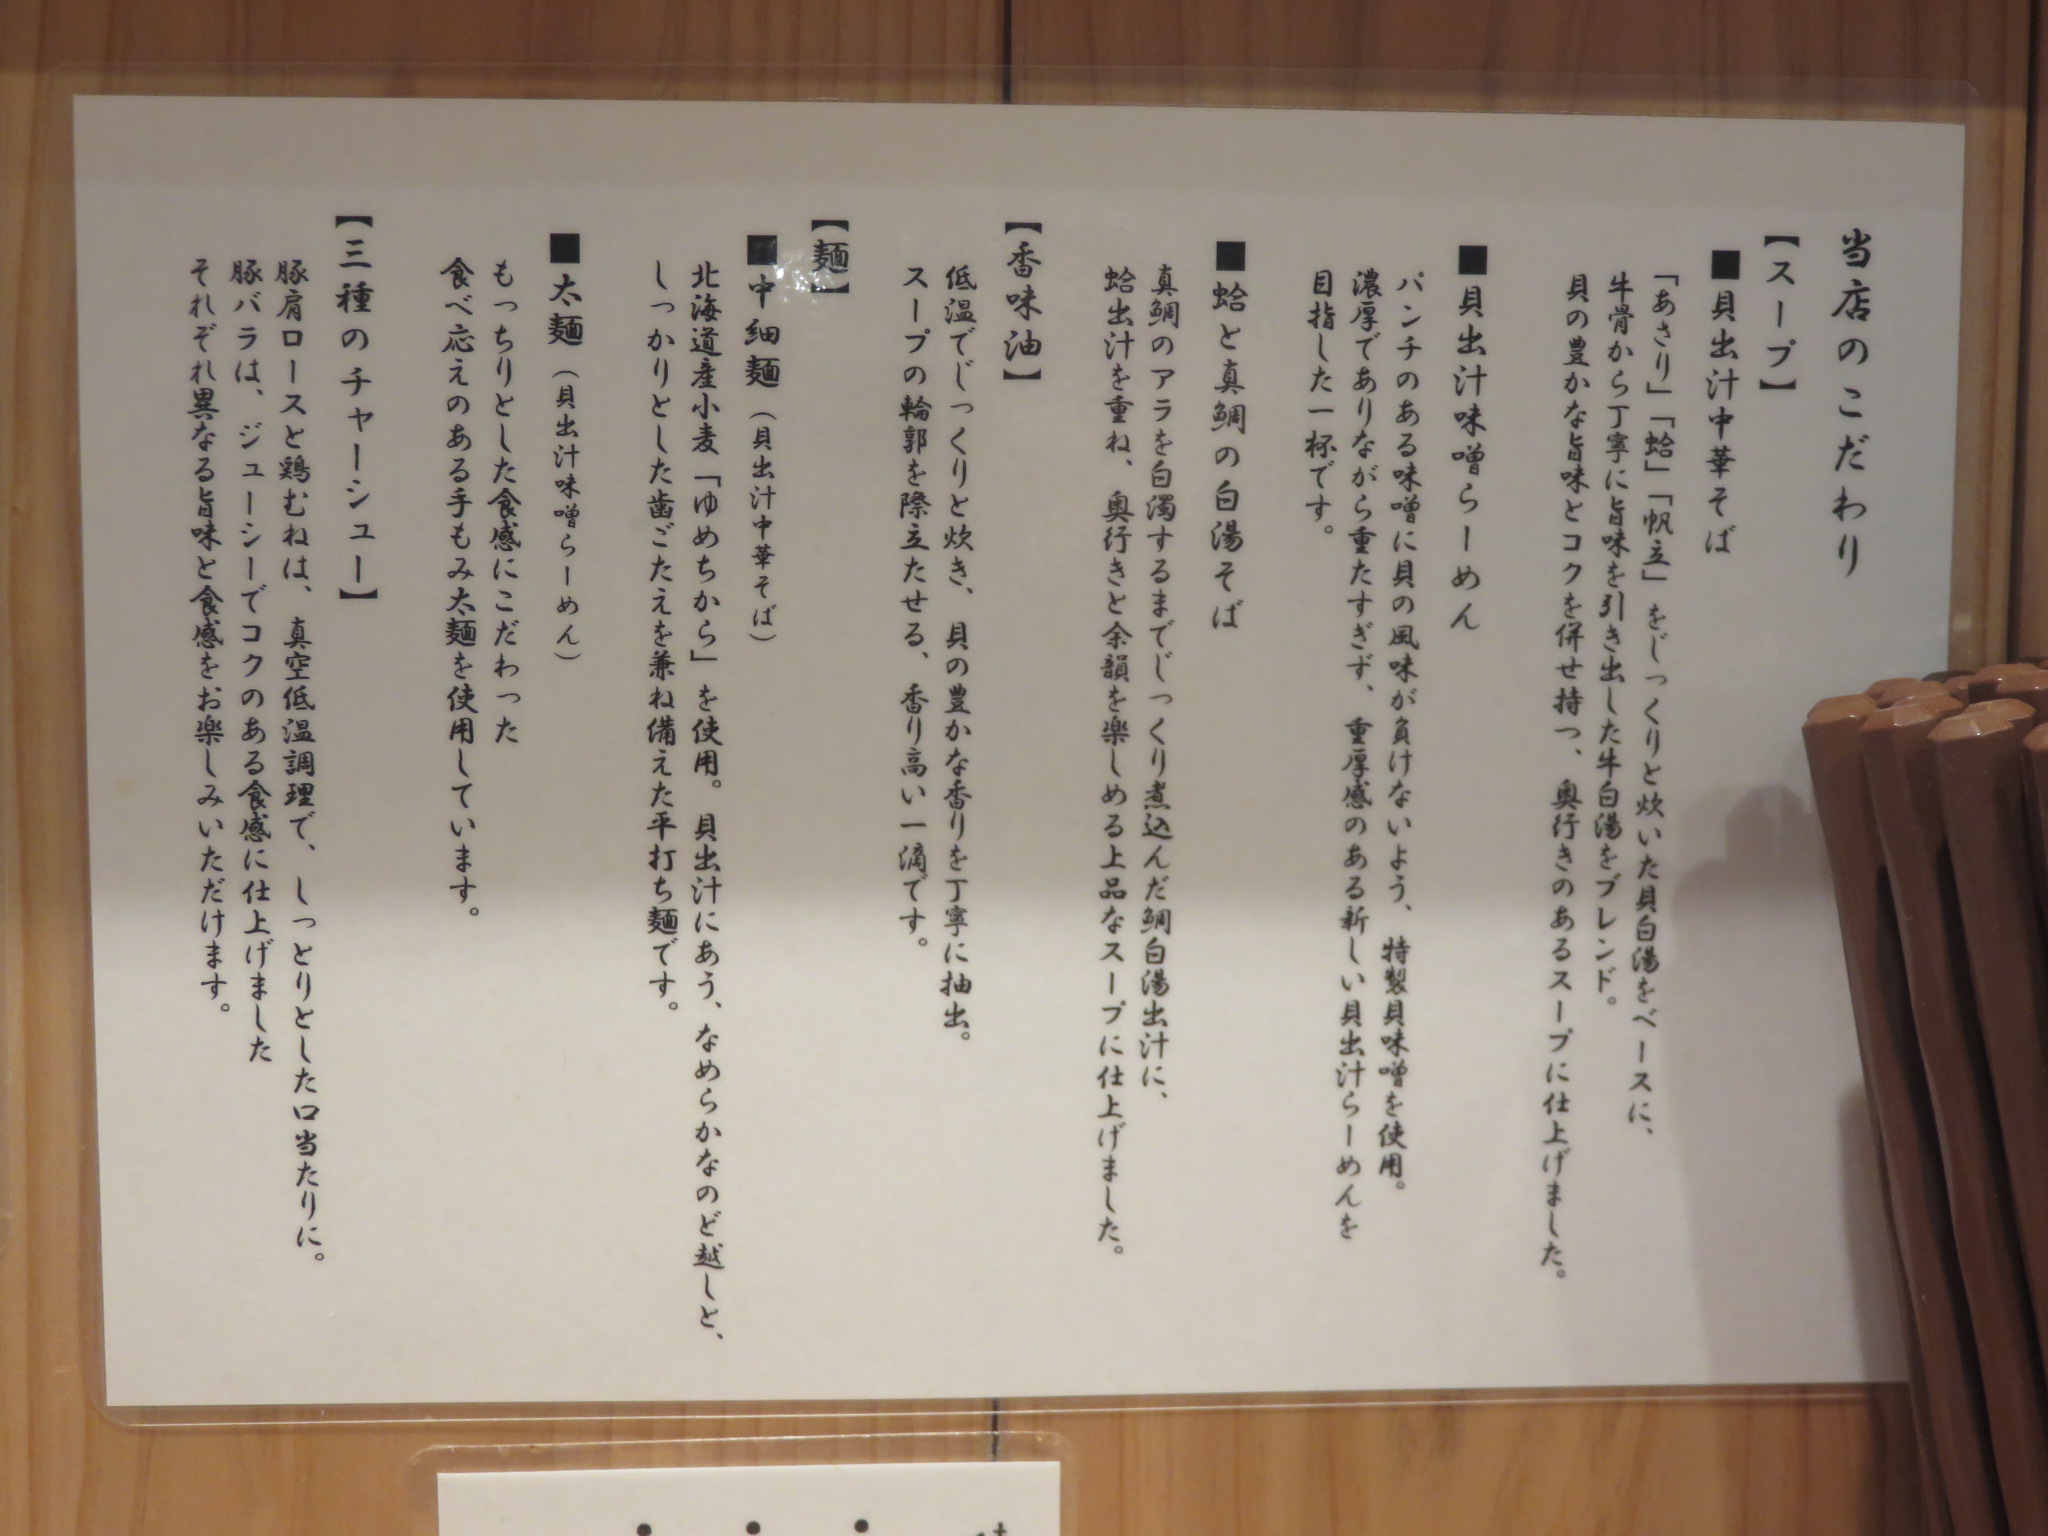 当店のこだわり
【スープ】
■貝出汁中華そば
「あさり」「蛤」「帆立」をじっくりと炊いた貝白湯をベースに、
牛骨から丁寧に旨味を引き出した牛白湯をブレンド。
貝の豊かな旨味とコクを併せ持つ、奥行きのあるスープに仕上げました。
■貝出汁味噌らーめん
パンチのある味噌に貝の風味が負けないよう、特製貝味噌を使用。
濃厚でありながら重たすぎず、重厚感のある新しい貝出汁らーめんを
目指した一杯です。
■蛤と真鯛の白湯そば
真鯛のアラを白濁するまでじっくり煮込んだ鯛白湯出汁に、
蛤出汁を重ね、奥行きと余韻を楽しめる上品なスープに仕上げました。
【香味油】
低温でじっくりと炊き、貝の豊かな香りを丁寧に抽出。
スープの輪郭を際立たせる、香り高い一滴です。
【麺】
■中細麺（貝出汁中華そば）
北海道産小麦「ゆめちから」を使用。貝出汁にあう、なめらかなのど越しと、
しっかりとした歯ごたえを兼ね備えた平打ち麺です。
■太麺（貝出汁味噌らーめん）
もっちりとした食感にこだわった
食べ応えのある手もみ太麺を使用しています。
【三種のチャーシュー】
豚肩ロースと鶏むねは、真空低温調理で、しっとりとした口当たりに。
豚バラは、ジューシーでコクのある食感に仕上げました
それぞれ異なる旨味と食感をお楽しみいただけます。